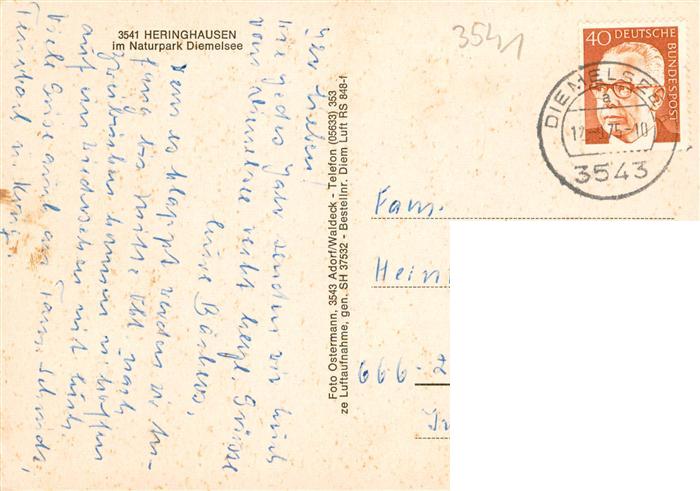 3541 HERINGHAUSEN
im Naturpark Diemelsee
3541
40 DEUTSCHE BUNDESPOST
DIEMELSEE
a
75-10
3543
Ihr Lieben!
Wie jedes Jahr senden wir Euch
vom Diemelsee recht herzl. Grüsse
Luise
Wenn es klappt werden wir
Anfang bis Mitte Okt. nach
kommen u. hoffen
auf ein Wiedersehen mit Euch.
Viele Grüsse auch an Fam. Schmidt,
u. König.
Foto Ostermann, 3543 Adorf/Waldeck - Telefon (05633) 353
ze Luftaufnahme, gen. SH 37532 - Bestellnr. Diem Luft RS 848-f
Fam.
Hein
666